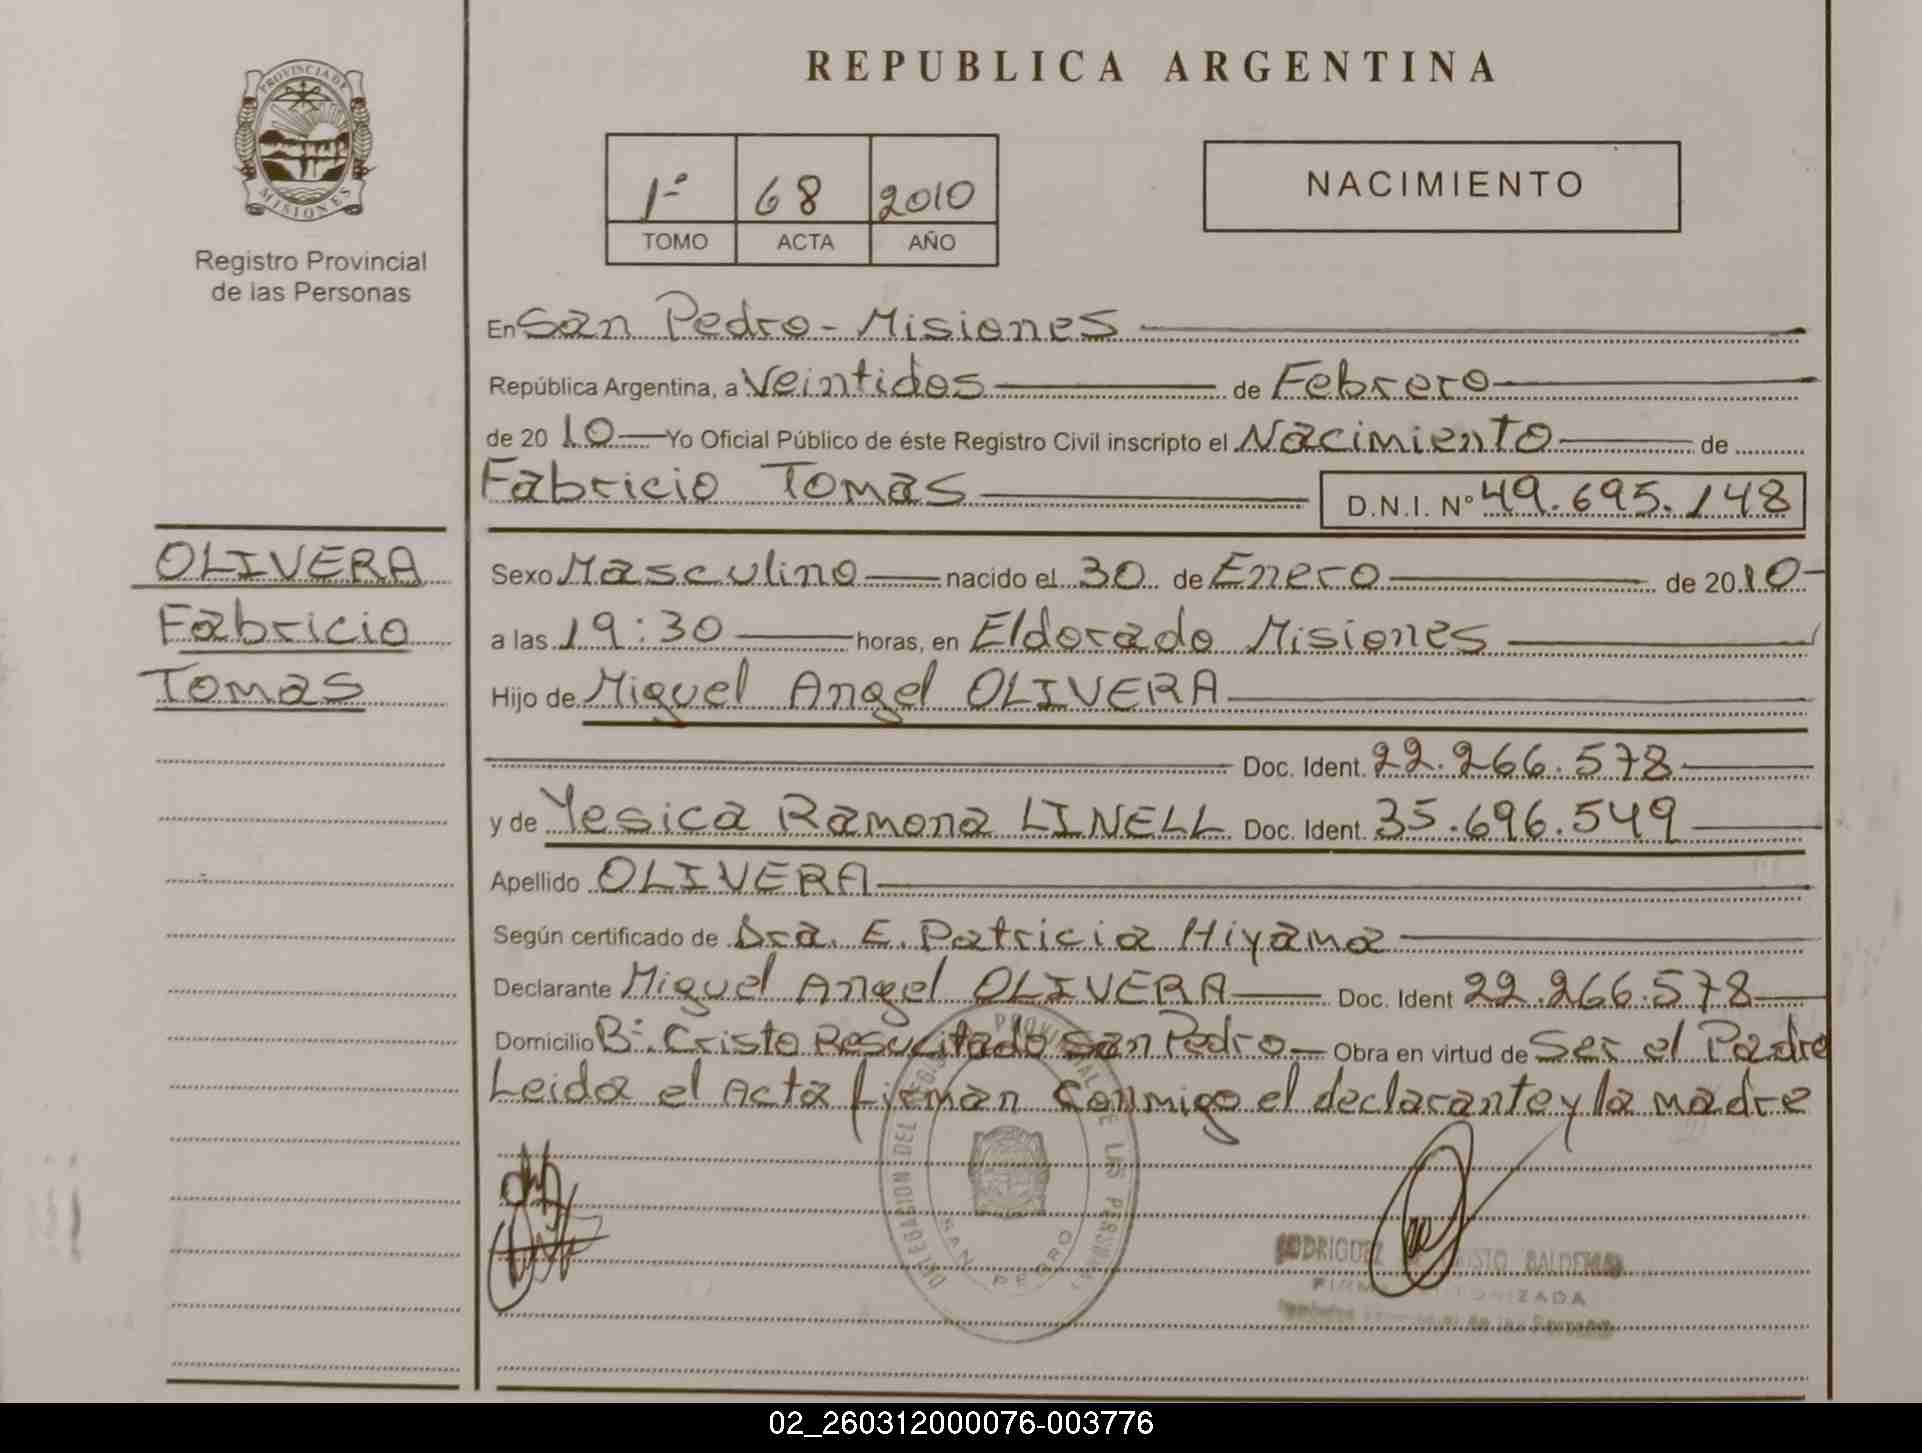 PROVINCIA DE
MISIONES
Registro Provincial
de las Personas
REPUBLICA ARGENTINA
1º 68 2010
TOMO ACTA AÑO
NACIMIENTO
En San Pedro - Misiones
República Argentina, a Veintidos de Febrero
de 2010 Yo Oficial Público de éste Registro Civil inscripto el Nacimiento de
Fabricio Tomas D.N.I. Nº 49.695.148
OLIVERA
Fabricio
Tomas
Sexo Masculino nacido el 30 de Enero de 2010
a las 19:30 horas, en Eldorado Misiones
Hijo de Miguel Angel OLIVERA
Doc. Ident. 22.266.578
y de Yesica Ramona LINELL Doc. Ident. 35.696.549
Apellido OLIVERA
Según certificado de Dra. E. Patricia Hiyama
Declarante Miguel Angel OLIVERA Doc. Ident 22.266.578
Domicilio Bº. Cristo Resucitado San Pedro Obra en virtud de Ser el Padre
Leida el Acta firman Conmigo el declarante y la madre
DELEGACION DEL PROVINCIAL DE LAS PERSONAS
SAN PEDRO
RODRIGUEZ
02_260312000076-003776